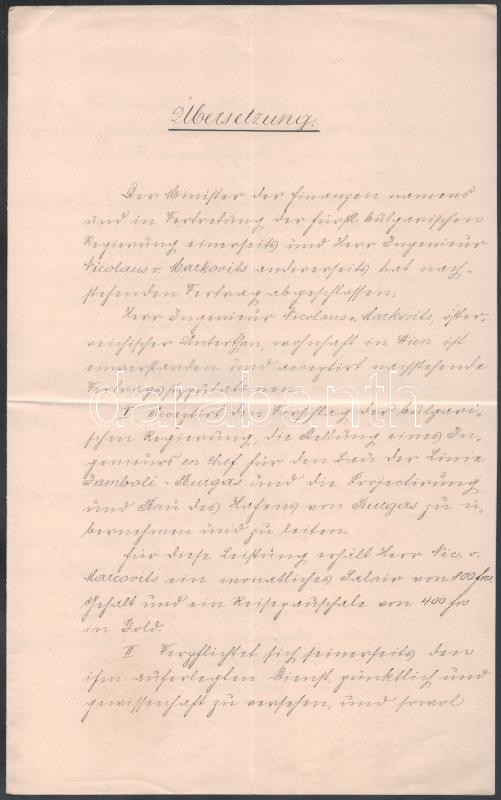 Übersetzung.
Der Minister der Finanzen namens
und in Vertretung der fürstl. bulgarischen
Regierung einerseits und Herr Ingenieur
Nicolaus v. Markovits andererseits hat nach-
stehenden Vertrag abgeschlossen:
Herr Ingenieur Nicolaus v. Markovits, öster-
reichischer Unterthan, wohnhaft in Wien ist
einverstanden und acceptirt nachstehende
Vertragsstipulationen:
I. Acceptirt den Vorschlag der bulgari-
schen Regierung, die Stellung eines In-
genieurs en chef für den Bau der Linie
Jamboli-Burgas und die Projectirung
und Bau des Hafens von Burgas zu ü-
bernehmen und zu leiten.
Für diese Leistung erhält Herr Nic. v.
Marcovits ein monatliches Salair von 800 frcs
Gehalt und ein Reisepauschale von 400 frs
in Gold.
II Verpflichtet sich seinerseits den
ihm auferlegten Dienst, pünktlich und
gewissenhaft zu versehen, und sowol
darabanth